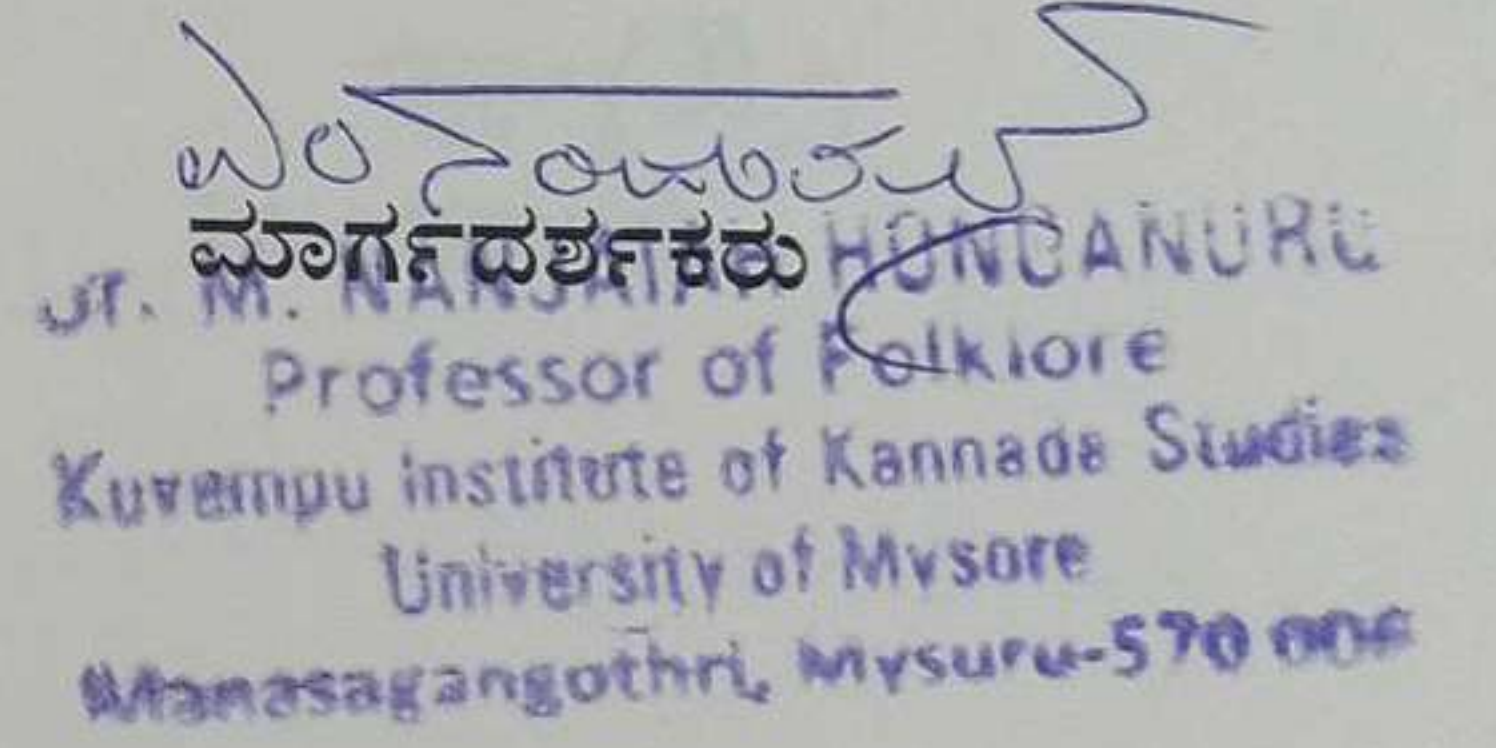 ಮಾರ್ಗದರ್ಶಕರು
Dr. M. NANJAIAH HONGANURU
Professor of Folklore
Kuvempu institute of Kannada Studies
University of Mysore
Manasagangothri, Mysuru-570 006